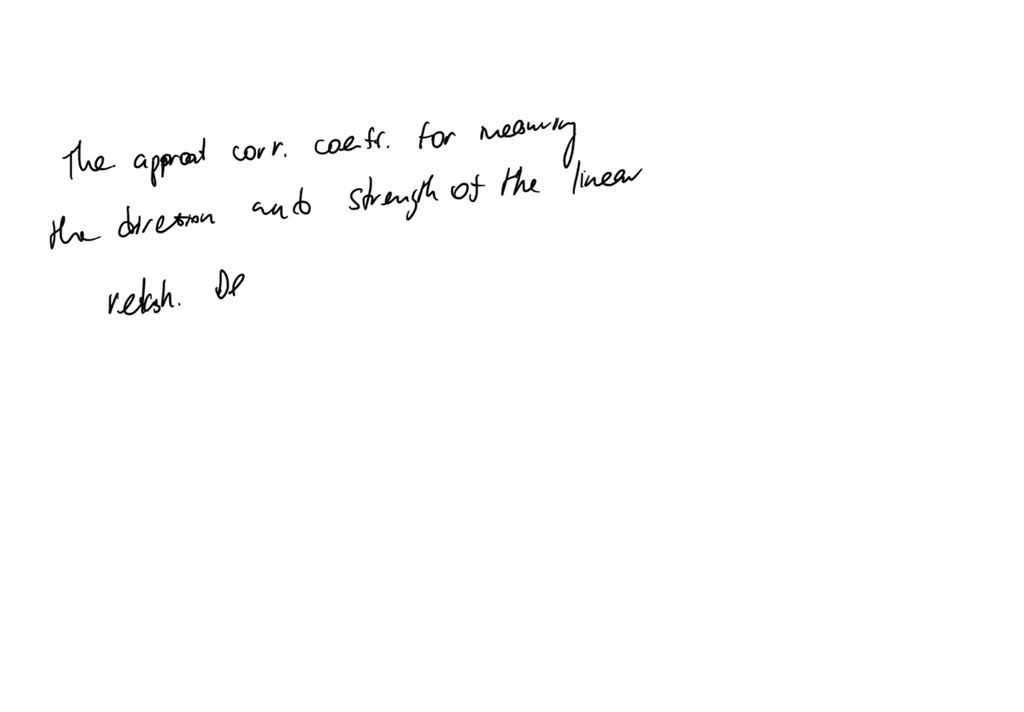 The approat corr. coefr. for measuring
the diretion and strength of the linear
relatsh. De